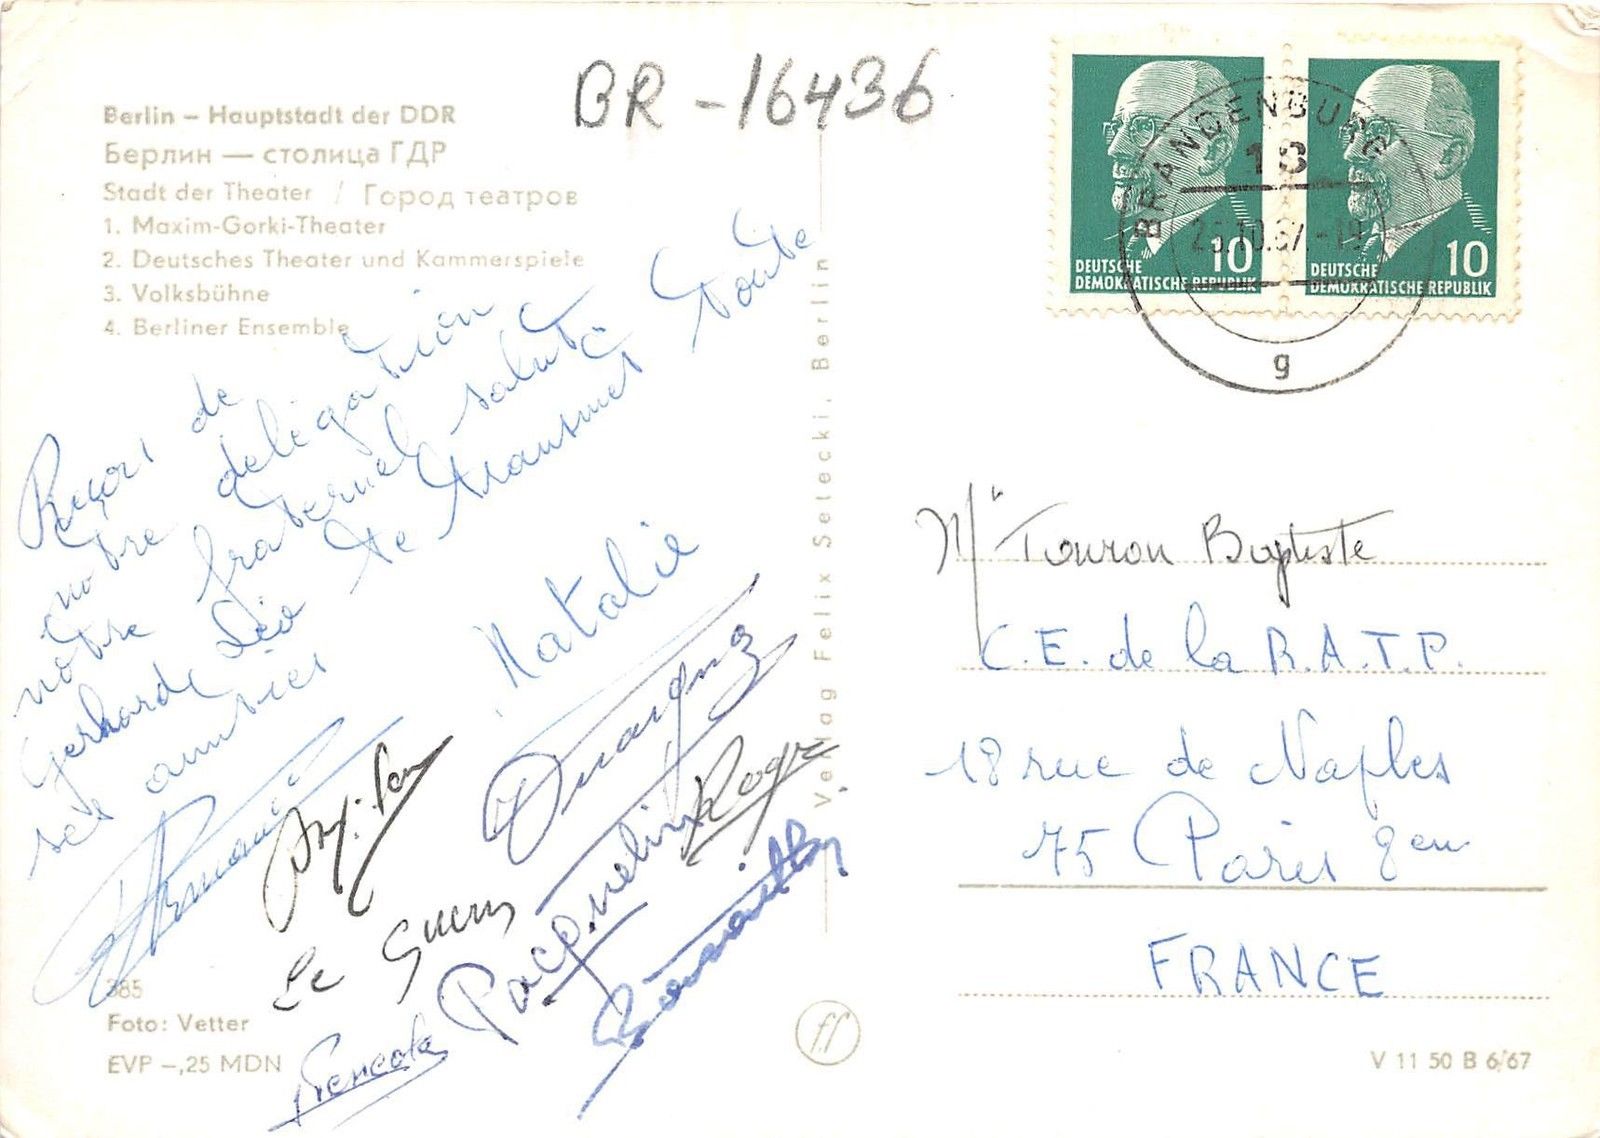 BR-16436
Berlin – Hauptstadt der DDR
Берлин — столица ГДР
Stadt der Theater / Город театров
1. Maxim-Gorki-Theater
2. Deutsches Theater und Kammerspiele
3. Volksbühne
4. Berliner Ensemble
Reçois de
notre délégation
notre fraternel salut
Gerhardt Léo te transmet toute
ses amitiés
Natalie
Duvigno
Roger
Le Guern
Jacqueline
385
Foto: Vetter
EVP –,25 MDN
Verlag Felix Setecki, Berlin
ff
DEUTSCHE
DEMOKRATISCHE REPUBLIK
10
DEUTSCHE
DEMOKRATISCHE REPUBLIK
10
BRANDENBURG
18
10.67.-19
g
Mr Touron Baptiste
C.E. de la R.A.T.P.
18 rue de Naples
75 Paris 8em
FRANCE
V 11 50 B 6/67